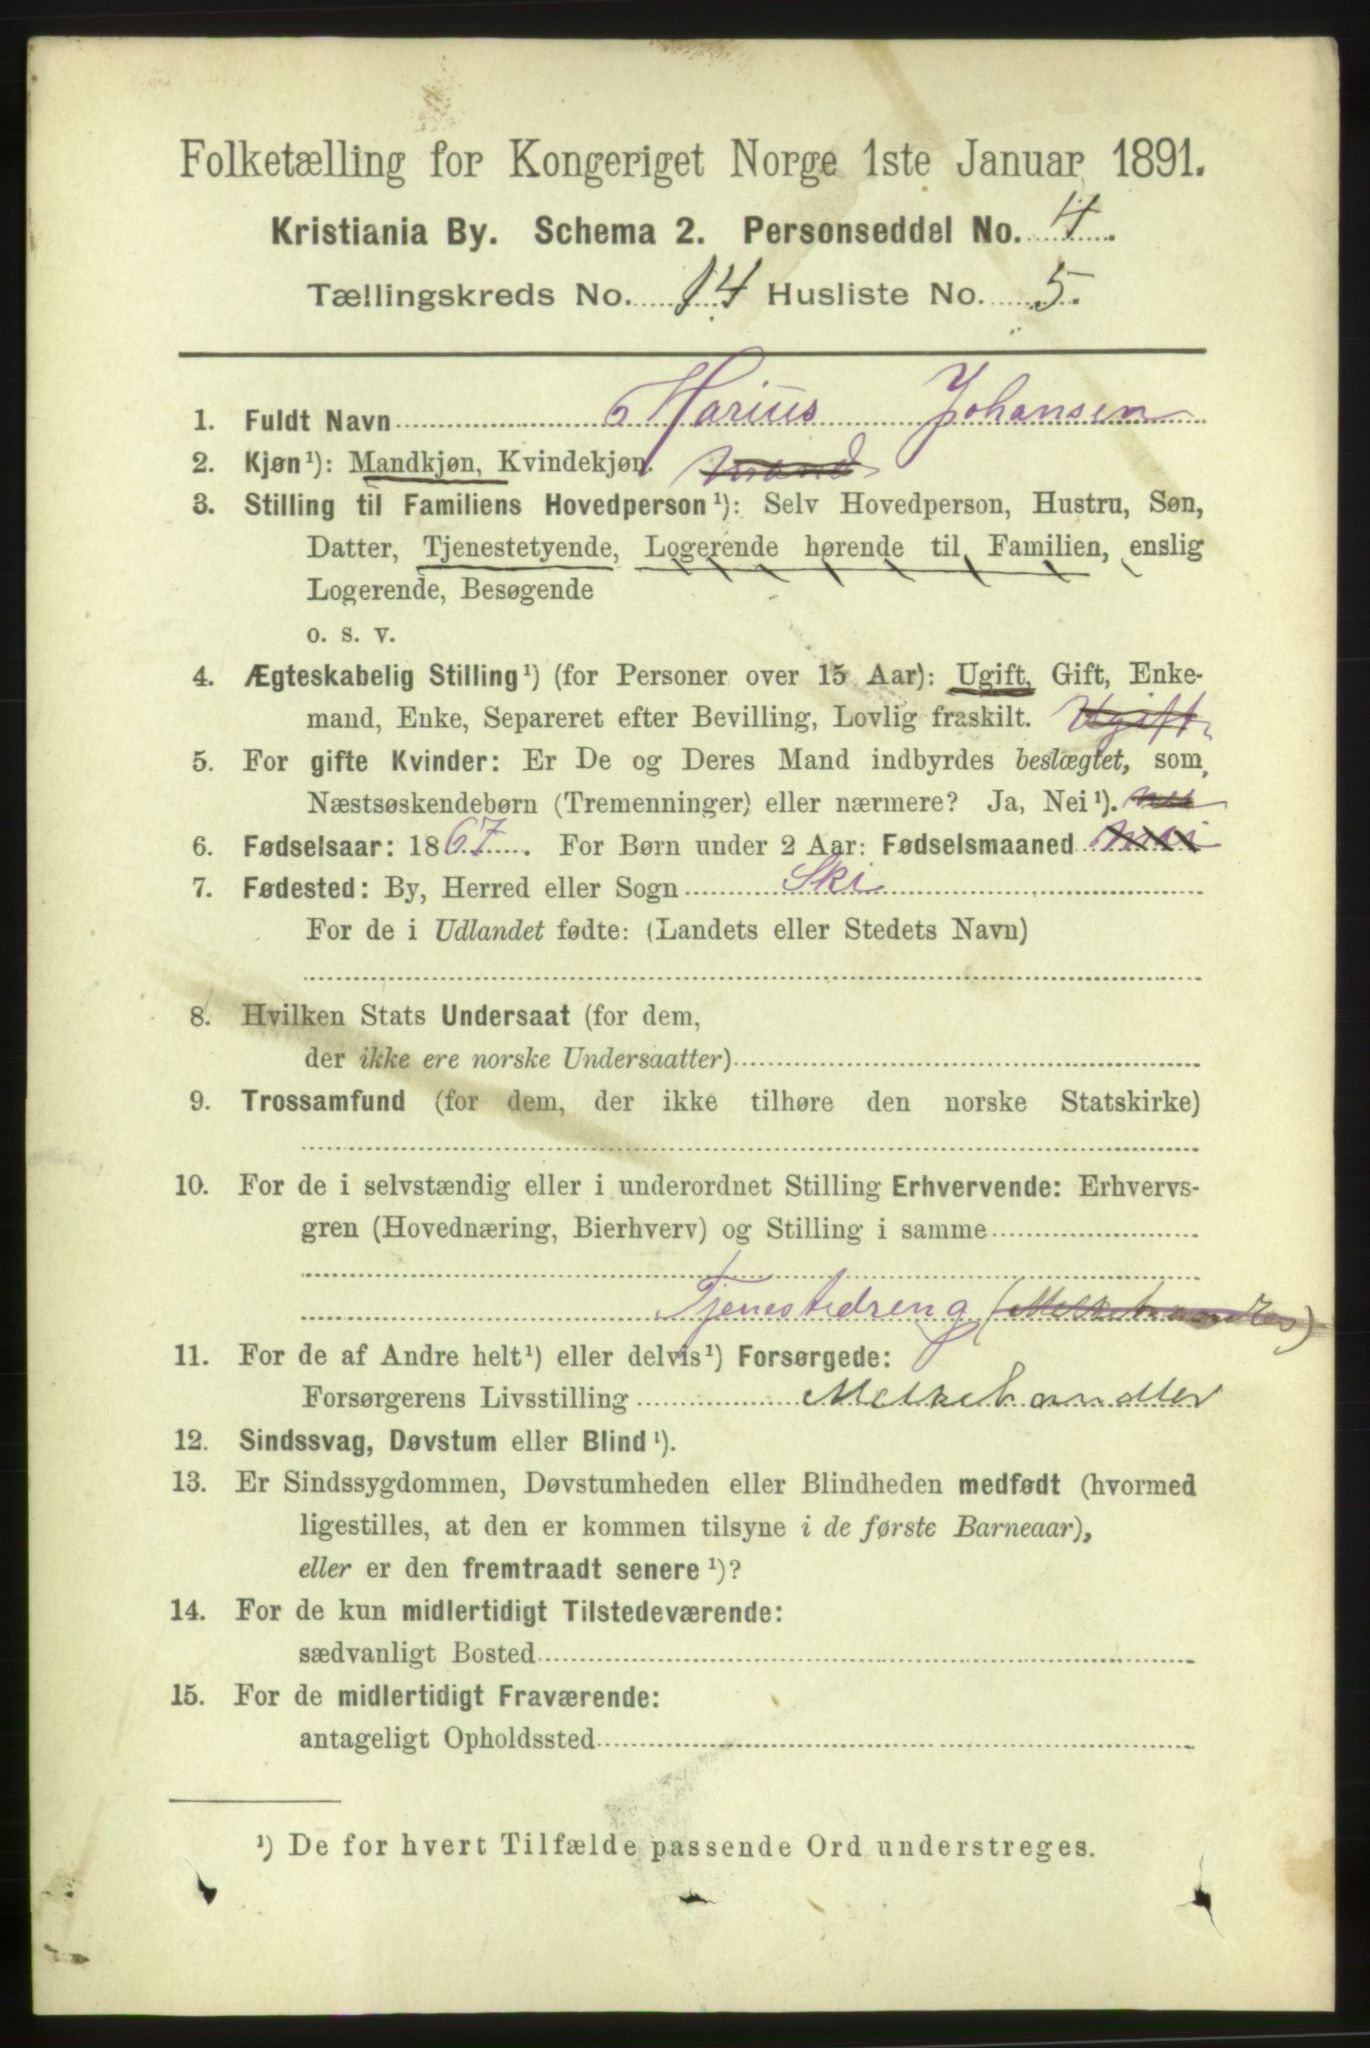 Folketælling for Kongeriget Norge 1ste Januar 1891.
Kristiania By. Schema 2. Personseddel No. 4.
Tællingskreds No. 14 Husliste No. 5.
1. Fuldt Navn Marius Johansen
2. Kjøn¹): Mandkjøn, Kvindekjøn. Mand
3. Stilling til Familiens Hovedperson¹): Selv Hovedperson, Hustru, Søn,
Datter, Tjenestetyende, Logerende hørende til Familien, enslig
Logerende, Besøgende
o. s. v.
4. Ægteskabelig Stilling¹) (for Personer over 15 Aar): Ugift, Gift, Enke-
mand, Enke, Separeret efter Bevilling, Lovlig fraskilt. Ugift
5. For gifte Kvinder: Er De og Deres Mand indbyrdes beslægtet, som
Næstsøskendebørn (Tremenninger) eller nærmere? Ja, Nei¹). nei
6. Fødselsaar: 1867. For Børn under 2 Aar: Fødselsmaaned
7. Fødested: By, Herred eller Sogn Ski
For de i Udlandet fødte: (Landets eller Stedets Navn)
8. Hvilken Stats Undersaat (for dem,
der ikke ere norske Undersaatter)
9. Trossamfund (for dem, der ikke tilhøre den norske Statskirke)
10. For de i selvstændig eller i underordnet Stilling Erhvervende: Erhvervs-
gren (Hovednæring, Bierhverv) og Stilling i samme
Tjenestedreng
11. For de af Andre helt¹) eller delvis¹) Forsørgede:
Forsørgerens Livsstilling Melkehandler
12. Sindssvag, Døvstum eller Blind¹).
13. Er Sindssygdommen, Døvstumheden eller Blindheden medfødt (hvormed
ligestilles, at den er kommen tilsyne i de første Barneaar),
eller er den fremtraadt senere¹)?
14. For de kun midlertidigt Tilstedeværende:
sædvanligt Bosted
15. For de midlertidigt Fraværende:
antageligt Opholdssted
¹) De for hvert Tilfælde passende Ord understreges.